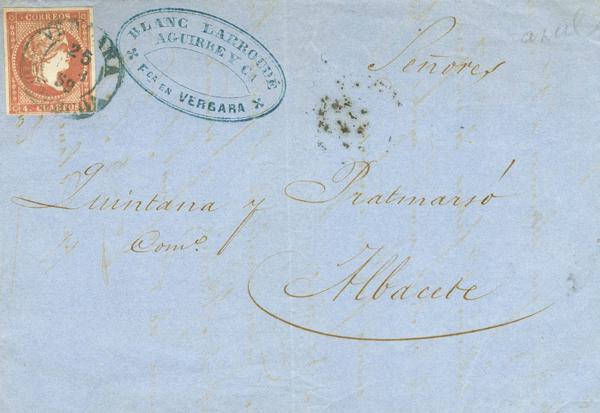 CORREOS
4 CUARTOS
25
59
BLANC LARROUDÉ
AGUIRRE Y CA.
FCA EN VERGARA
azul
Señores
Quintana y Pratmarsó
Comª
Albacete